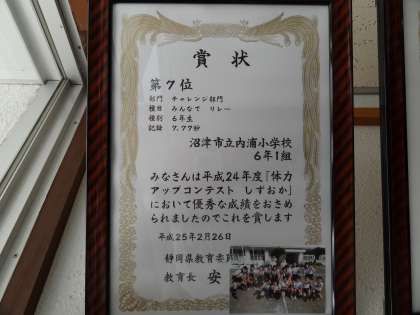 賞状
第7位
部門 チャレンジ部門
種目 みんなで リレー
種別 6年生
記録 7.77秒
沼津市立内浦小学校
6年1組
みなさんは平成24年度「体力
アップコンテスト しずおか」
において優秀な成績をおさめ
られましたのでこれを賞します
平成25年2月26日
静岡県教育委
教育長 安